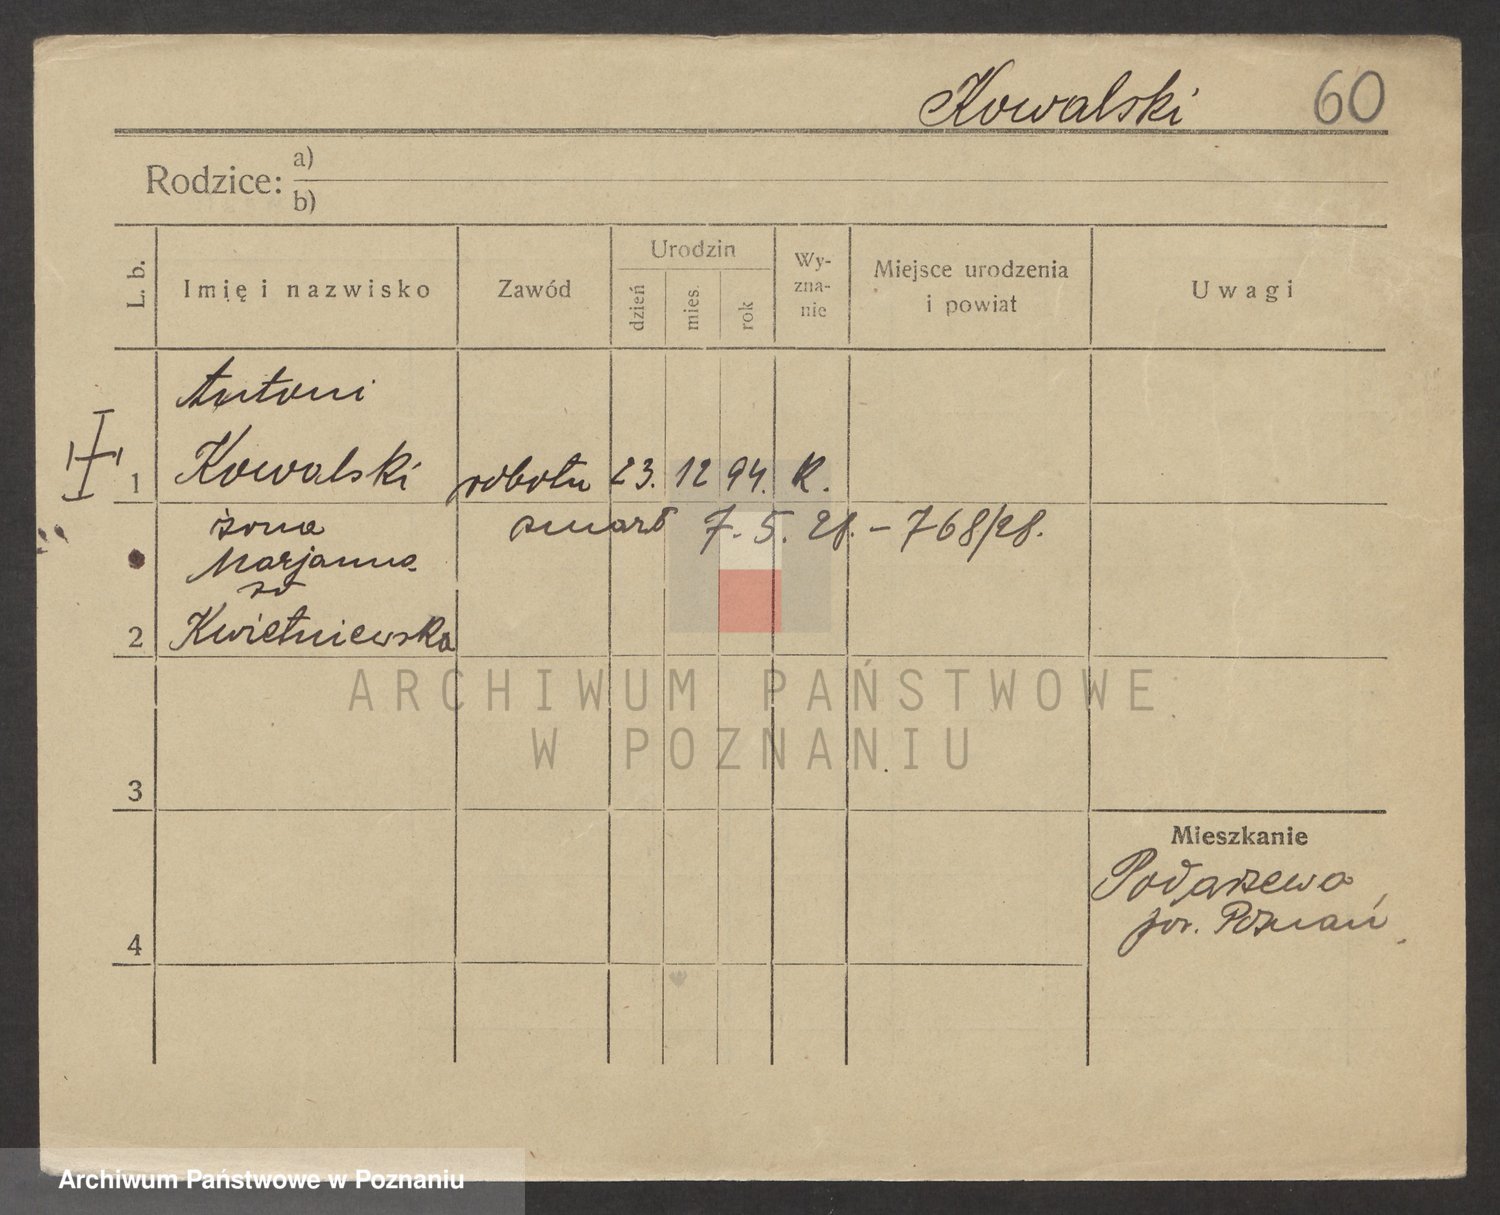 Kowalski 60
Rodzice: a)
b)
L. b.
Imię i nazwisko
Zawód
Urodzin
dzień
mies.
rok
Wy-
zna-
nie
Miejsce urodzenia
i powiat
Uwagi
Antoni
1 Kowalski robotn 23. 12 94. K.
żona zmarł 7. 5. 28. – 768/28.
Marjanna
zd
2 Kwietniewska
3
4
Mieszkanie
Podarzewo
pow. Poznań
ARCHIWUM PAŃSTWOWE
W POZNANIU
Archiwum Państwowe w Poznaniu